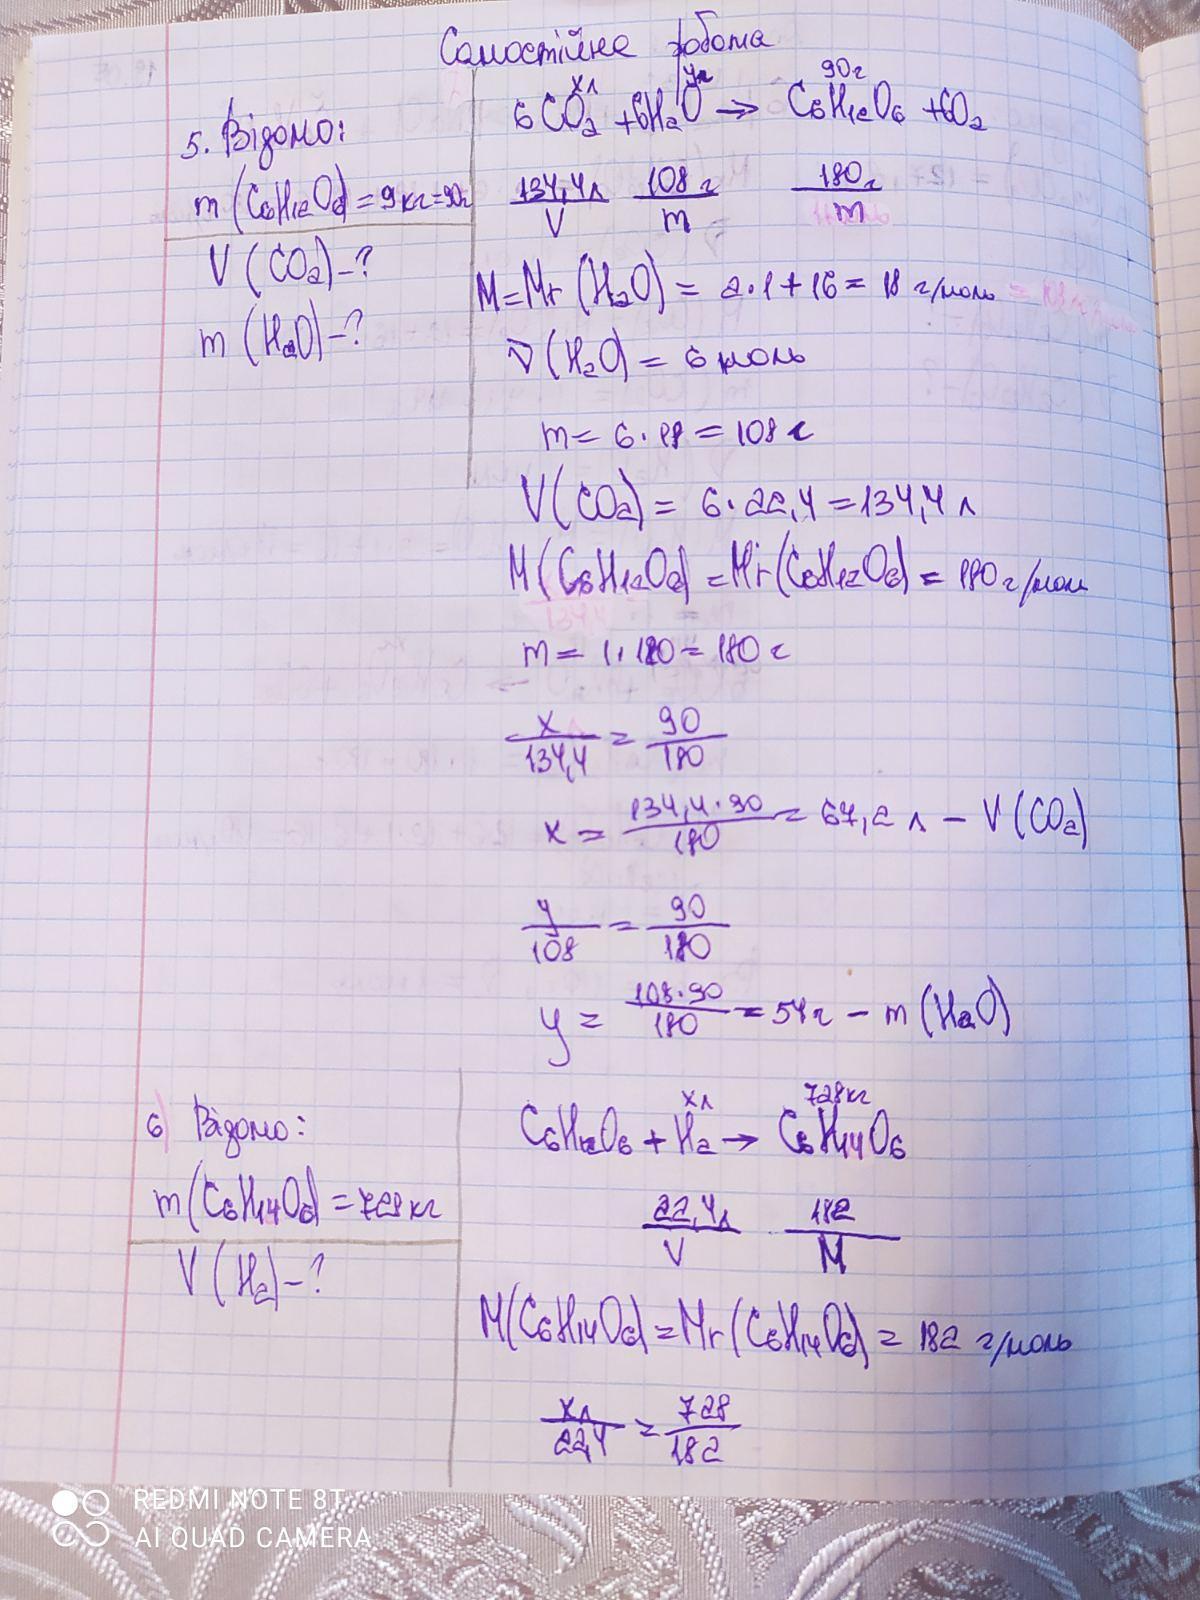 Самостійна робота
5. Відомо:
m(C6H12O6)=9кг=90г
V(CO2)-?
m(H2O)-?
xл yг 90г
6CO2+6H2O→C6H12O6+6O2
134,4л 108г 180г
V m m
M=Mr(H2O)=2·1+16=18 г/моль
ν(H2O)=6 моль
m=6·18=108г
V(CO2)=6·22,4=134,4л
M(C6H12O6)=Mr(C6H12O6)=180г/моль
m=1·180=180г
x/134,4=90/180
x=134,4·90/180=67,2л-V(CO2)
y/108=90/180
y=108·90/180=54г-m(H2O)
6) Відомо:
m(C6H14O6)=728кг
V(H2)-?
xл 728кг
C6H12O6+H2→C6H14O6
22,4л 182
V M
M(C6H14O6)=Mr(C6H14O6)=182 г/моль
xл/22,4=728/182
REDMI NOTE 8T
AI QUAD CAMERA